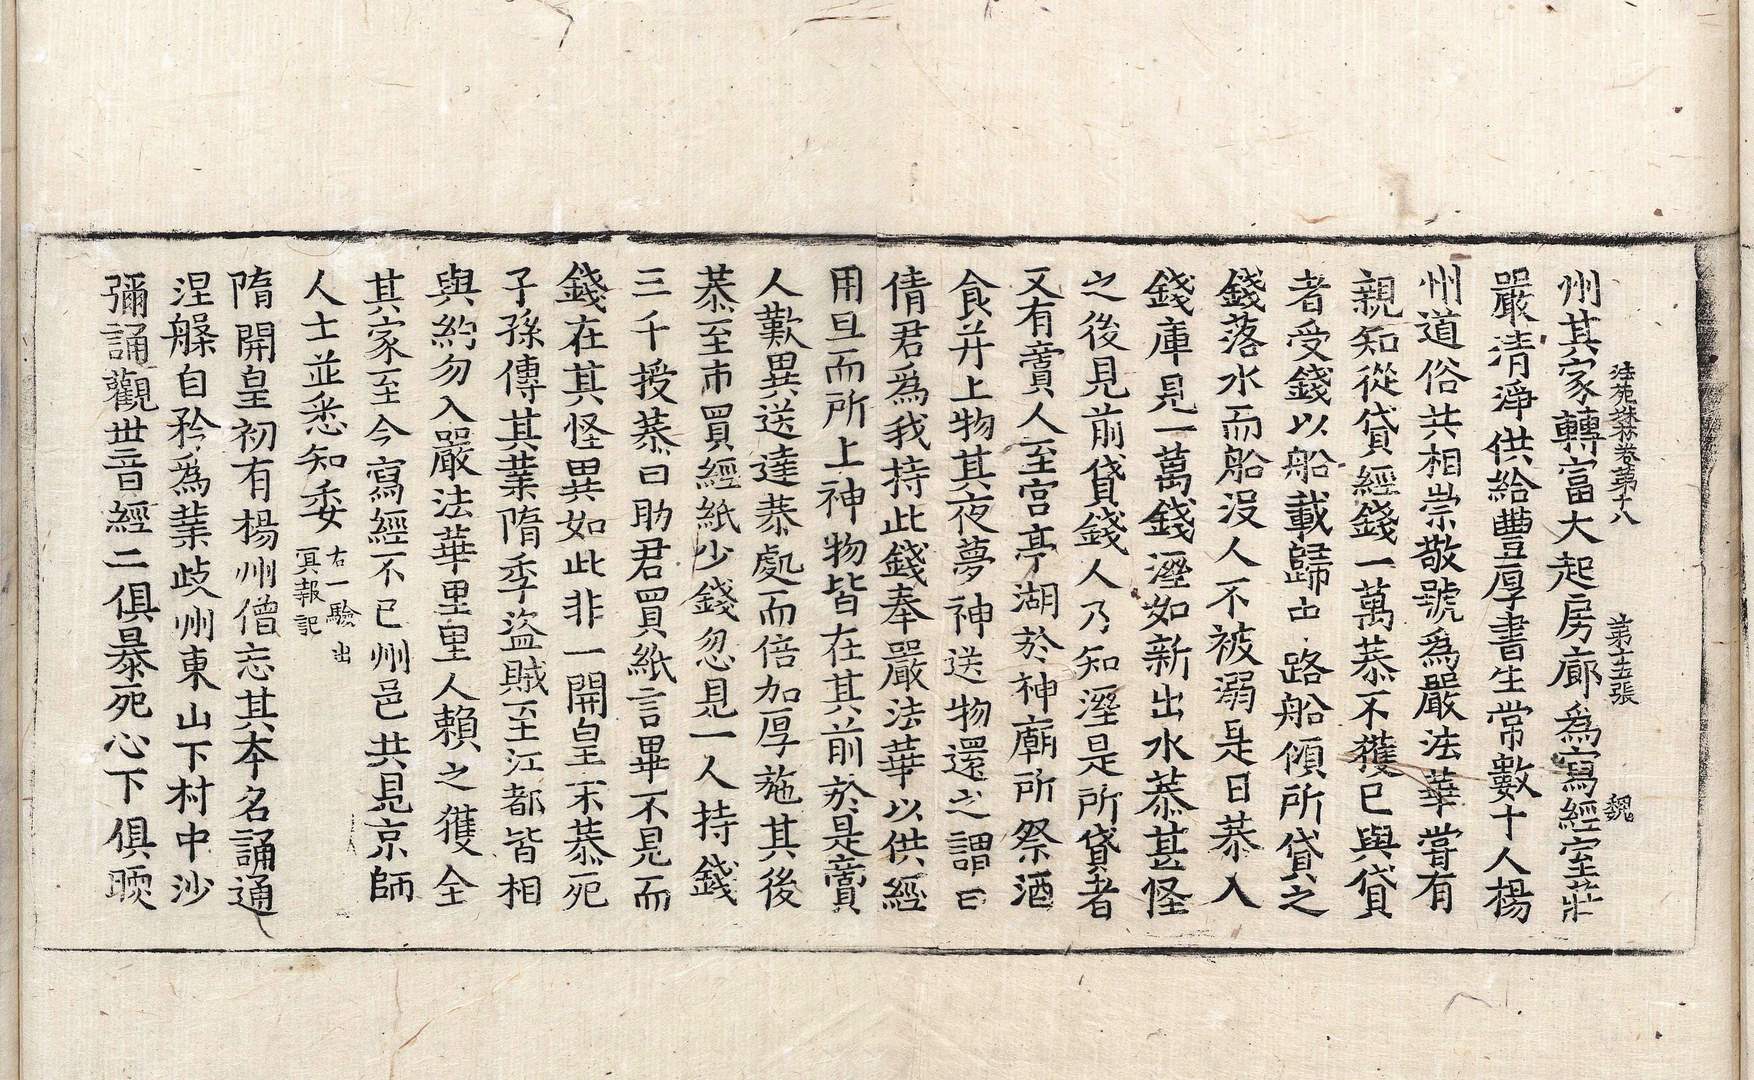 法苑珠林卷第十八　第十五張　魏
州其家轉富大起房廊爲寫經室莊
嚴清淨供給豊厚書生常數十人楊
州道俗共相崇敬號爲嚴法華嘗有
親知從貸經錢一萬恭不獲已與貸
者受錢以船載歸中路船傾所貸之
錢落水而船没人不被溺是日恭入
錢庫見一萬錢溼如新出水恭甚怪
之後見前貸錢人乃知溼是所貸者
又有賣人至宮亭湖於神廟所祭酒
食并上物其夜夢神送物還之謂曰
倩君爲我持此錢奉嚴法華以供經
用旦而所上神物皆在其前於是賣
人歎異送達恭處而倍加厚施其後
恭至市買經紙少錢忽見一人持錢
三千授恭曰助君買紙言畢不見而
錢在其怪異如此非一開皇末恭死
子孫傳其業隋季盜賊至江都皆相
與約勿入嚴法華里里人賴之獲全
其家至今寫經不已州邑共見京師
人士並悉知委 右一驗出冥報記
隋開皇初有楊州僧忘其本名誦通
涅槃自矜爲業歧州東山下村中沙
彌誦觀世音經二俱暴死心下俱暖